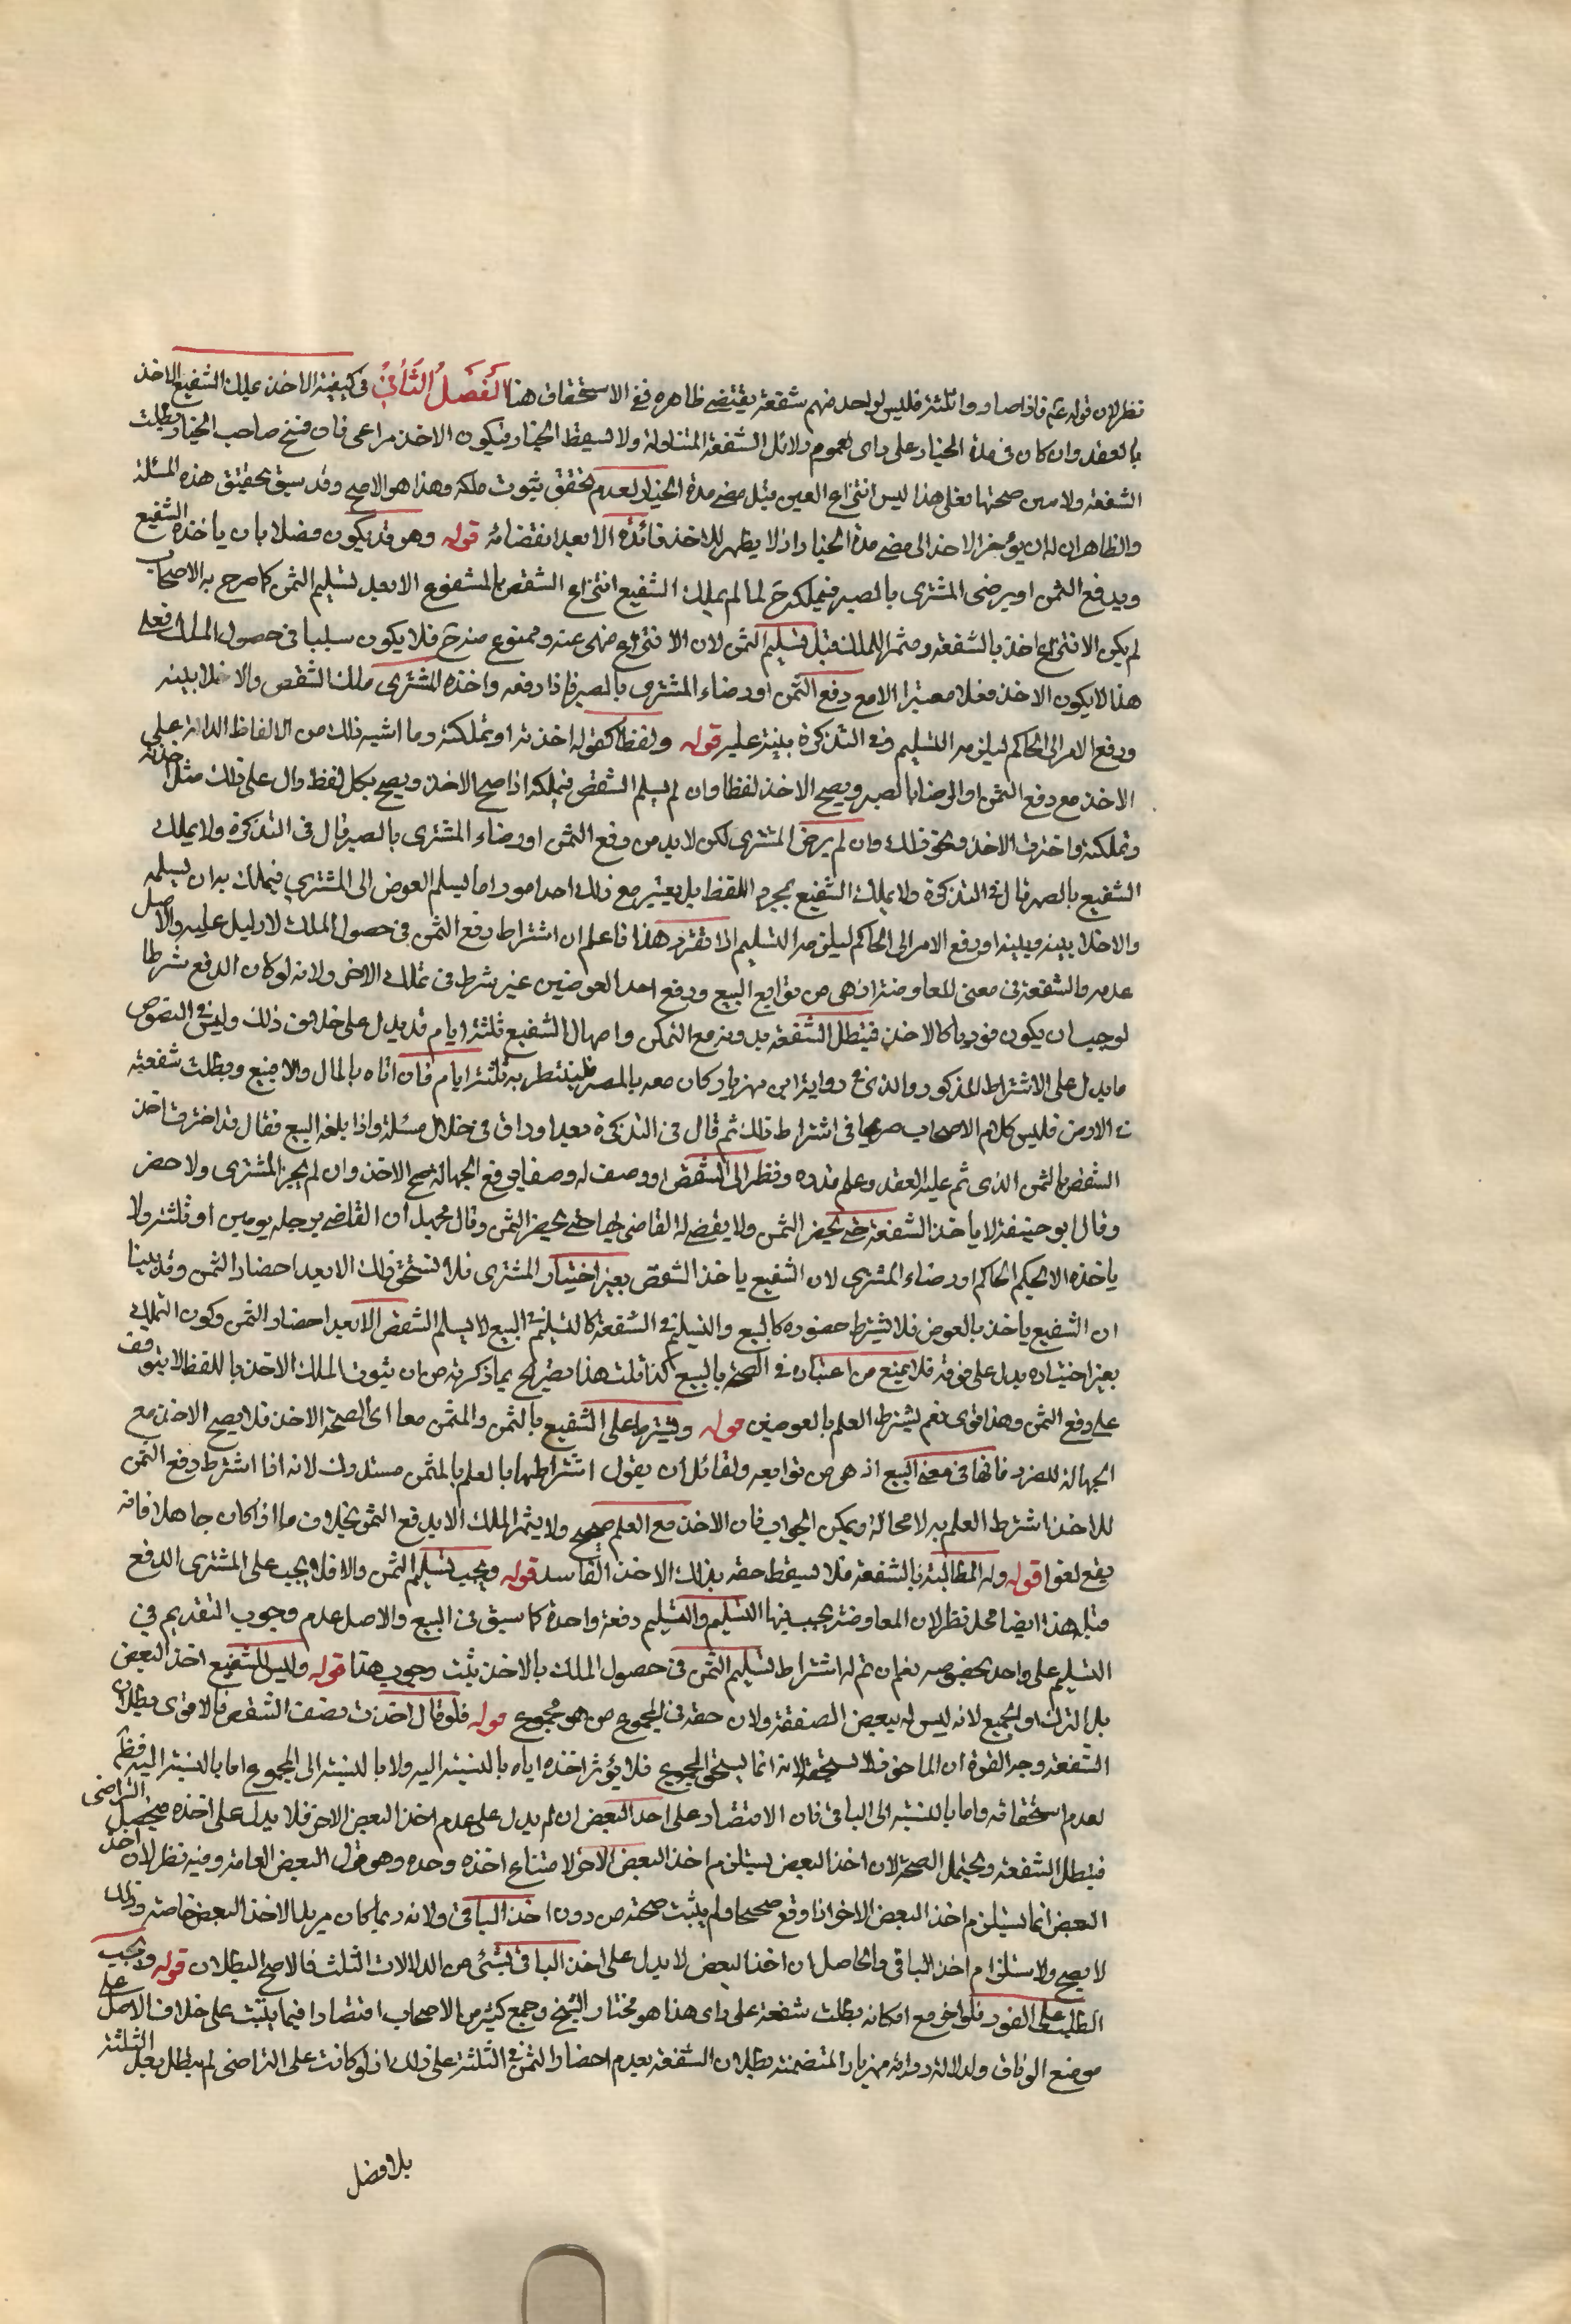 نظر لان قوله عم فاذا صاروا ثلثة فليس لواحد منهم شفعة يقتضي ظاهره نفي الاستحقاق هنا الفصل الثاني في كيفية الاخذ يملك الشفيع الاخذ
بالعقد وان كان في مدة الخيار على راى لعموم دلائل الشفعة المتناولة ولا يسقط الخيار فيكون الاخذ مراعى فان فسخ صاحب الخيار بطلت
الشفعة ولا صحتها فعلى هذا ليس انتزاع العين قبل مضي مدة الخيار لعدم تحقق ثبوت ملكه وهذا هو الاصح وقد سبق تحقيق هذه المسئلة
والظاهر ان له ان يؤخر الاخذ الى مضي مدة الخيار اذ لا يظهر للاخذ فائدة الا بعد انقضائه قوله وهو قد يكون فعلا بان ياخذه الشفيع
ويدفع الثمن او يرضى المشترى بالصبر فيملكه ح لما لم يملك الشفيع انتزاع الشقص المشفوع الا بعد تسليم الثمن كما صرح به الاصحاب
لم يكن الانتزاع اخذا بالشفعة ومثمرا للملك قبل تسليم الثمن لان الانتزاع منهى عنه وممنوع منه ح فلا يكون سببا في حصول الملك فعلى
هذا لا يكون الاخذ فعلا معتبرا الا مع دفع الثمن او رضاء المشترى بالصبر فاذا دفعه واخذه المشترى ملك الشقص والا خلا بينه
ورفع الامر الى الحاكم ليلزمه التسليم وفي التذكرة بينة عليه قوله ولفظا كقوله اخذته او تملكته وما اشبه ذلك من الالفاظ الدالة على
الاخذ مع دفع الثمن او الرضا بالصبر ويصح الاخذ لفظا وان لم يسلم الشقص فيملكه اذا صح الاخذ ويصح بكل لفظ دال على ذلك مثل اخذته
وتملكته واخترت الاخذ ونحو ذلك وان لم يرض المشترى لكن لا بد من دفع الثمن او رضاء المشترى بالصبر قال في التذكرة ولا يملك
الشفيع بالصبر قال في التذكرة ولا يملك الشفيع بمجرد اللفظ بل يعتبر مع ذلك احد امور اما يسلم العوض الى المشترى فيملك به ان يسلمه
والا خلا بينه وبينه او رفع الامر الى الحاكم ليلزمه التسليم اذا تقرر هذا فاعلم ان اشتراط دفع الثمن في حصول الملك لا دليل عليه والاصل
عدمه والشفعة في معنى المعاوضة اذ هى من توابع البيع ودفع احد العوضين غير شرط في تملك الاخر ولانه لو كان الدفع شرطا
لوجب ان يكون فوريا كالاخذ فتبطل الشفعة بدونه مع التمكن وامهال الشفيع ثلثة ايام قد يدل على خلاف ذلك وليس في النصوص
ما يدل على الاشتراط المذكور والذى في رواية ابن مهزيار كان معه بالمصر فلينتظر به ثلثة ايام فان اتاه بالمال والا فليبع وبطلت شفعته
في الارض فليس كلام الاصحاب صريحا في اشتراط ذلك ثم قال في التذكرة بعد اوراق في خلال مسئلة واذا بلغه البيع فقال قد اخترت اخذ
الشقص بالثمن الذى تم عليه العقد وعلم قدره ونظر الى الشقص او وصف له وصفا يرفع الجهالة صح الاخذ وان لم يجز المشترى ولا حضر
وقال ابو حنيفة لا ياخذ الشفعة حتى يحضر الثمن ولا يقضي له القاضى بها حتى يحضر الثمن وقال محمد ان القاضي يوجله يومين او ثلثة ولا
ياخذه الا بحكم الحاكم او رضاء المشترى لان الشفيع ياخذ الشقص بغير اختيار المشترى فلا يستحق ذلك الا بعد احضار الثمن وقد بينا
ان الشفيع ياخذ بالعوض فلا يشترط حضوره كالبيع والتسليم في الشفعة كالتسليم في البيع لا يسلم الشقص الا بعد احضار الثمن وكون التملك
بغير اختياره يدل على قوته فلا يمنع من اعتباره في الصحة بالبيع كذا قلت هذا تصريح بما ذكرته من ان ثبوت الملك الاخذ باللفظ لا يتوقف
على دفع الثمن وهذا قوى نعم يشترط العلم بالعوضين قوله ويشترط على الشفيع بالثمن والمثمن معا اى لصحة الاخذ فلا يصح الاخذ مع
الجهالة للضرر فانها في معنى البيع اذ هى من توابعه ولقائل ان يقول اشتراطهما بالعلم بالثمن مستدرك لانه اذا اشترط دفع الثمن
للاخذ اشترط العلم به لا محالة ويمكن الجواب فان الاخذ مع العلم صحيح ولا يثمر الملك الا بدفع الثمن بخلاف ما اذا كان جاهلا فانه
يقع لغوا قوله وله المطالبة بالشفعة فلا يسقط حقه بذلك الاخذ الفاسد قوله ويجب تسليم الثمن والا فلا يجب على المشترى الدفع
قبله هذا ايضا محل نظر لان المعاوضة يجب فيها التسليم والتسليم دفعة واحدة كما سبق في البيع والاصل عدم وجوب التقديم في
التسليم على واحد بخصوصه نعم ان تم له اشتراط تسليم الثمن في حصول الملك بالاخذ يثبت وجوب هذا قوله وليس للشفيع اخذ البعض
بل الترك او الجميع لانه ليس له تبعيض الصفقة ولان حقه في المجموع من هو مجموع قوله فلو قال اخذت نصف الشقص فالاقوى بطلان
الشفعة وجه القوة ان الماخوذ لا يستحقه لانه انما يستحق المجموع فلا يؤثر اخذه اياه بالنسبة اليه ولا بالنسبة الى المجموع اما بالنسبة اليه فظم
لعدم استحقاقه واما بالنسبة الى الباقى فان الاقتصار على اخذ البعض ان لم يدل على عدم اخذ البعض الاخر فلا يدل على اخذه فيحصل التراخى
فتبطل الشفعة ويحتمل الصحة لان اخذ البعض يستلزم اخذ البعض الاخر لامتناع اخذه وحده وهو قول البعض العامة وفيه نظر لان اخذ
البعض انما يستلزم اخذ البعض الاخر اذا وقع صحيحا ولم يثبت صحته من دون اخذ الباقى ولانه ربما كان مريدا لاخذ البعض خاصة وذلك
لا يصح ولا يستلزم اخذ الباقى والحاصل ان اخذ البعض لا يدل على اخذ الباقى بشئ من الدلالات الثلث فالاصح البطلان قوله ويجب
الطلب على الفور فلو اخر مع امكانه بطلت شفعته على راى هذا هو مختار الشيخ وجمع كثير من الاصحاب اقتصارا فيما يثبت على خلاف الاصل على
موضع الوفاق ولدلالة رواية ابن مهزيار المتضمنة بطلان الشفعة بعدم احضار الثمن في الثلثة على ذلك اذ لو كانت على التراخى لم تبطل بعد الثلثة
بلا فصل